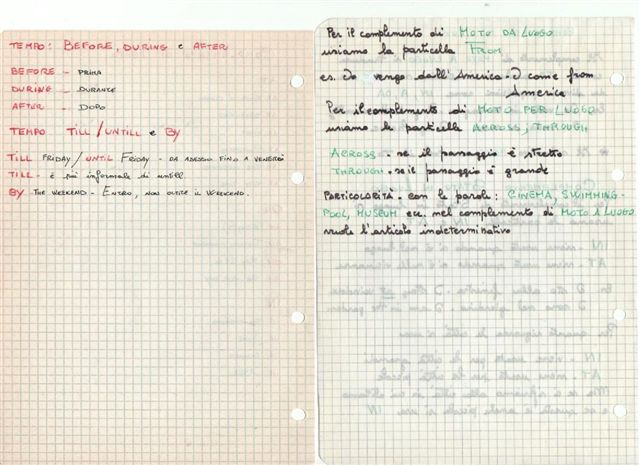 TEMPO: BEFORE, DURING e AFTER
BEFORE - PRIMA
DURING - DURANTE
AFTER - DOPO
TEMPO TILL/UNTILL e BY
TILL FRIDAY/UNTIL FRIDAY - DA ADESSO FINO A VENERDÌ
TILL - è più informale di untill.
BY - THE WEEKEND - ENTRO, NON OLTRE IL WEEKEND.
Per il complemento di MOTO DA LUOGO
usiamo la particella FROM
es. Io vengo dall'America - I come from
America
Per il complemento di MOTO PER LUOGO
usiamo le particelle ACROSS, THROUGH
ACROSS - se il passaggio è stretto
THROUGH - se il passaggio è grande
PARTICOLARITÀ - con le parole: CINEMA, SWIMMING-
POOL, MUSEUM ecc. nel complemento di MOTO A LUOGO
vuole l'articolo indeterminativo